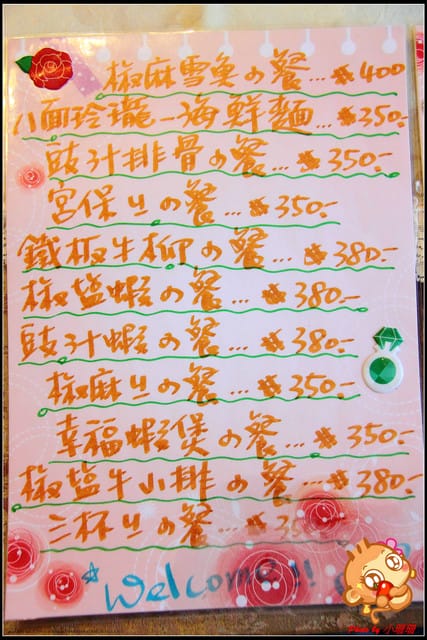 椒麻雪魚の餐...$400
八面玲瓏-海鮮麵...$350.-
豉汁排骨の餐...$350.-
宮保ㄐの餐...$350.-
鐵板牛柳の餐...$380.-
椒塩蝦の餐...$380.-
豉汁蝦の餐...$380.-
椒麻ㄐの餐...$350.-
幸福蝦煲の餐...$350.-
椒塩牛小排の餐...$380.-
三杯ㄐの餐...$35
Welcome!!
Photo by 小珊珊